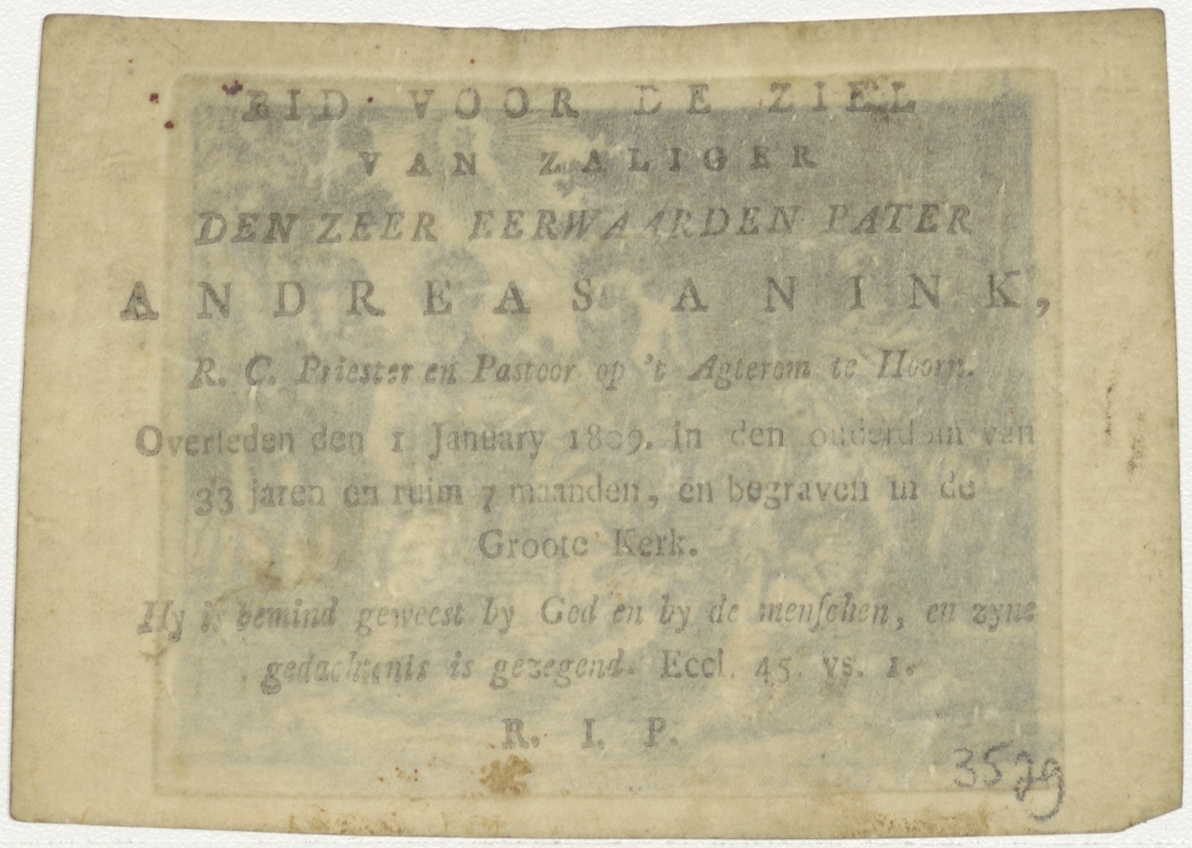 BID VOOR DE ZIEL
VAN ZALIGER
DEN ZEER EERWAARDEN PATER
ANDREAS ANINK,
R. C. Priester en Pastoor op 't Agterom te Hoorn.
Overleden den 1 January 1809. in den ouderdom van
33 jaren en ruim 7 maanden, en begraven in de
Groote Kerk.
Hy is bemind geweest by God en by de menſchen, en zyne
gedachtenis is gezegend. Eccl. 45. vs. 1.
R. I. P.